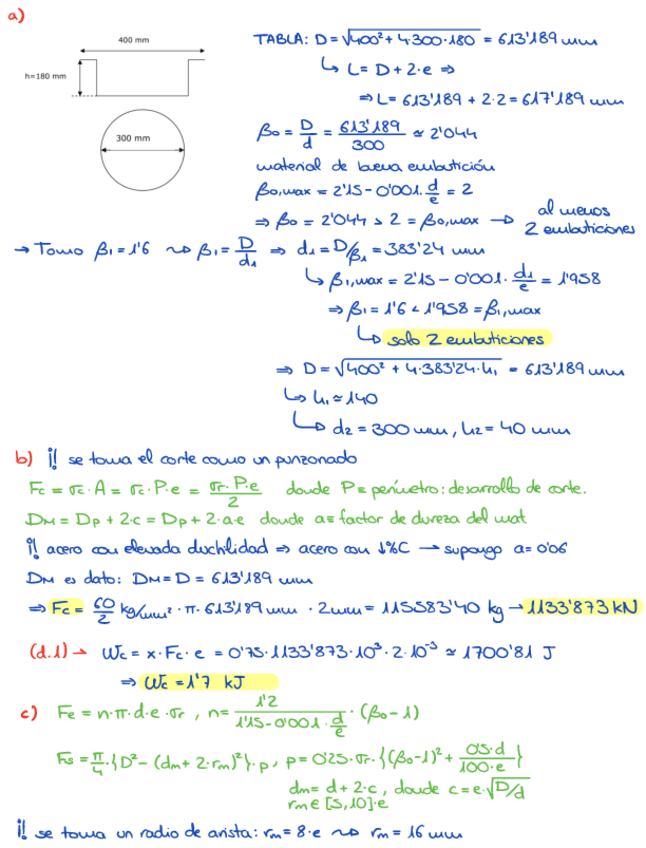 a)
400 mm
h=180 mm
300 mm
TABLA: D = √400² + 4·300·180 = 613'189 mm
↳ L = D + 2·e ⇒
⇒ L = 613'189 + 2·2 = 617'189 mm
β0 = D/d = 613'189/300 ≃ 2'044
material de buena embutición
β0,max = 2'15 - 0'001·d/e = 2
⇒ β0 = 2'044 > 2 = β0,max → al menos 2 embuticiones
→ Tomo β1 = 1'6 ⤳ β1 = D/d1 ⇒ d1 = D/β1 = 383'24 mm
↳ β1,max = 2'15 - 0'001·d1/e = 1'958
⇒ β1 = 1'6 < 1'958 = β1,max
↳ solo 2 embuticiones
⇒ D = √400² + 4·383'24·h1 = 613'189 mm
↳ h1 ≃ 140
↳ d2 = 300 mm, h2 = 40 mm
b) ¡! se toma el corte como un punzonado
Fc = σc·A = σc·P·e = σr·P·e/2 donde P = perímetro: desarrollo de corte.
DM = Dp + 2·c = Dp + 2·a·e donde a = factor de dureza del mat
¡! acero con elevada ductilidad ⇒ acero con ↓%C → supongo a = 0'06
DM es dato: DM = D = 613'189 mm
⇒ Fc = 60/2 kg/mm² · π · 613'189 mm · 2mm = 115583'40 kg → 1133'873 kN
(d.1) → Wc = x·Fc·e = 0'75·1133'873·10³·2·10⁻³ ≃ 1700'81 J
⇒ Wc = 1'7 kJ
c) Fe = n·π·d·e·σr , n = 1'2/1'15-0'001·d/e · (β0 - 1)
Fs = π/4·{D² - (dm + 2·rm)²}·p, p = 0'25·σr·{(β0-1)² + 0'5·d/100·e}
dm = d + 2·c, donde c = e·√D/d
rm ∈ [5,10]·e
¡! se toma un radio de arista: rm = 8·e ⤳ rm = 16 mm